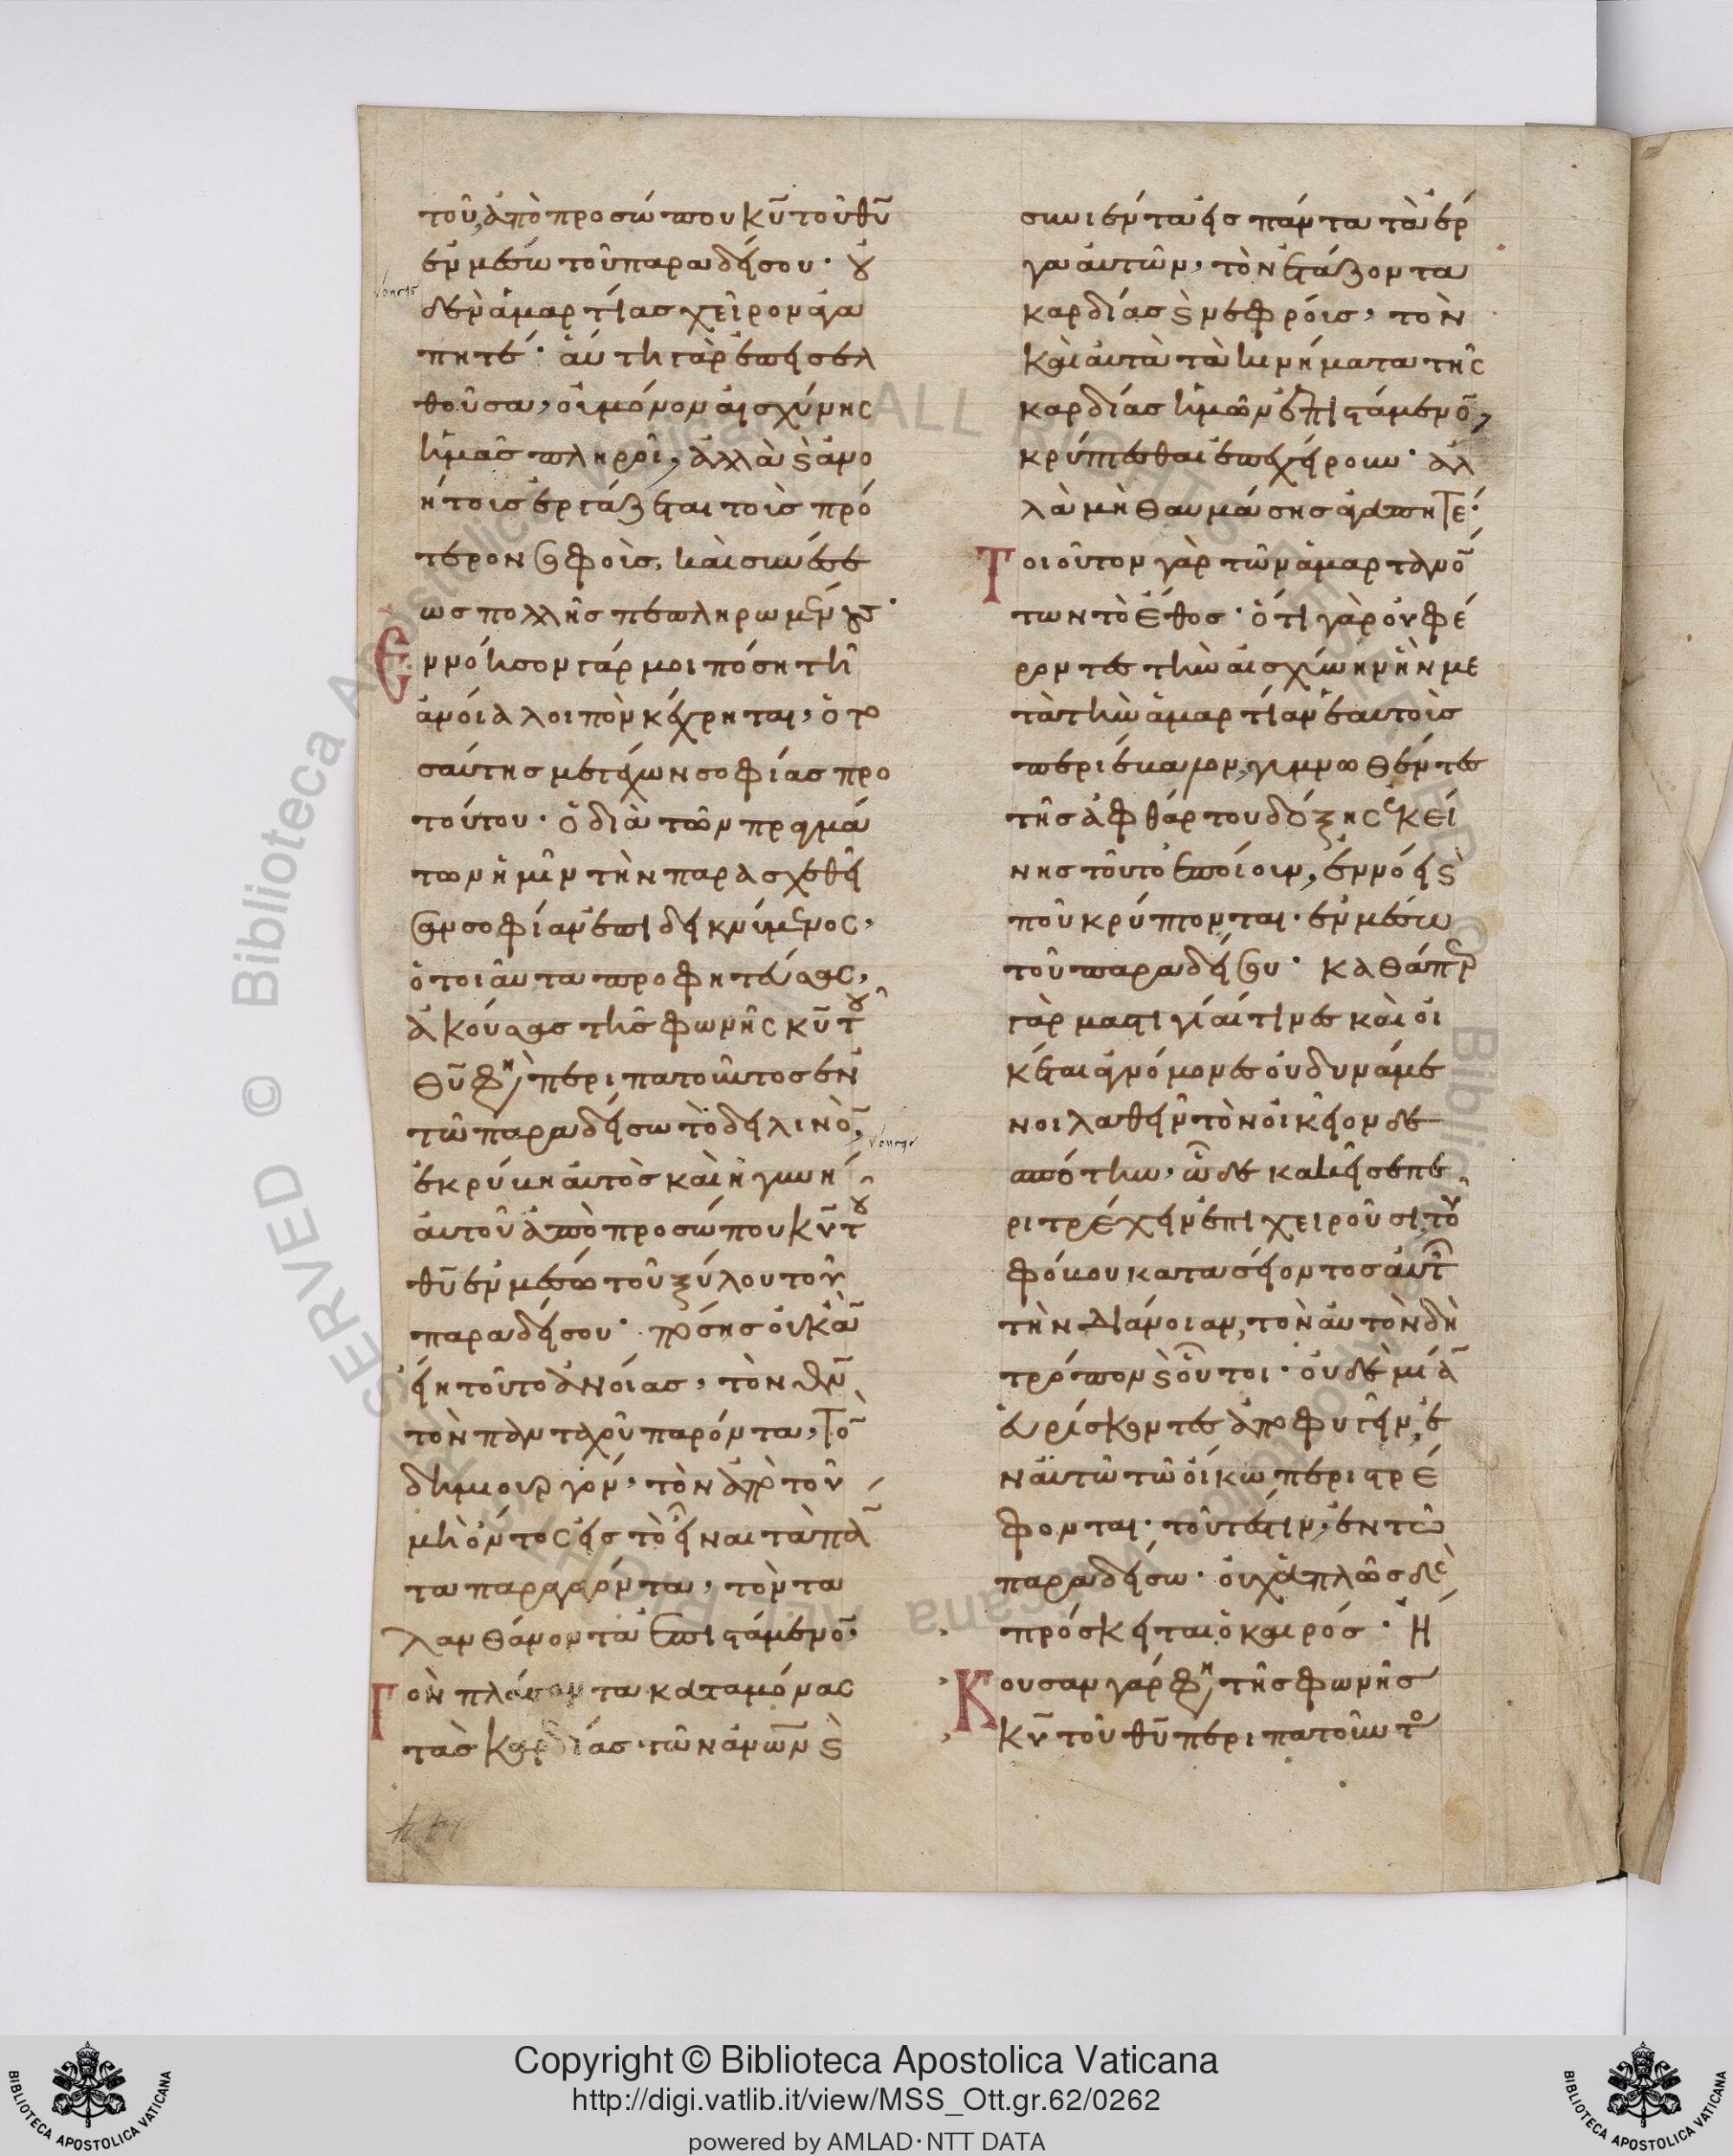 τοῦ, ἀπὸ προσώπου κῡ τοῦ θῡ
ἐν μέσω τοῦ παραδείσου· οὐ
δὲν ἁμαρτίας χεῖρον ἀγα
πητέ· αὕτη γὰρ ἐπεισελ
θοῦσα, οὐ μόνον αἰσχύνης
ἡμᾶς πληροῖ, ἀλλὰ καὶ ἀνο
ήτους ἐργάζεται τοὺς πρό
τερον σοφοὺς, καὶ συνέσε
ως πολλῆς πεπληρωμένους·
Εννόησον γάρ μοι πόση τῆ
ἀνοία λοιπὸν κέχρηται, ὁ το
σαύτης μετέχων σοφίας προ
τούτου· ὁ διὰ τῶν πραγμά
των ἡμῖν τὴν παρασχεθεῖ
σαν σοφίαν ἐπιδεικνύμενος,
ὁ τοιαῦτα προφητεύσας,
ἀκούσας τῆς φωνῆς κῡ τοῦ
θῡ φη περιπατοῦντος ἐν
τῶ παραδείσω τὸ δειλινὸν,
ἐκρύβη αὐτὸς καὶ ἡ γυνὴ
αὐτοῦ ἀπὸ προσώπου κῡ τοῦ
θῡ ἐν μέσω τοῦ ξύλου τοῦ
παραδείσου· πόσης οὐκ ἂν
εἴη τοῦτο ἀνοίας, τὸν θν̄
τὸν πανταχοῦ παρόντα, τὸν
δημιουργὸν, τὸν ἀπὸ τοῦ
μὴ ὄντος εἰς τὸ εἶναι τὰ πάν
τα παραγαγόντα, τὸν τὰ
λανθάνοντα ἐπιστάμενον,
Τὸν πλάσαντα καταμόνας
τὰς καρδίας τῶν ἀνων̄ καὶ
συνιέντα εἰς πάντα τὰ ἔρ
γα αὐτῶν, τὸν ἐτάζοντα
καρδίας καὶ νεφροὺς, τὸν
καὶ αὐτὰ τὰ κινήματα τῆς
καρδίας ἡμῶν ἐπιστάμενον,
κρύπτεσθαι ἐπεχείρουν· ἀλ
λὰ μὴ θαυμάσης ἀγαπητέ·
Τοιοῦτον γὰρ τῶν ἁμαρτανόν
των τὸ ἔθος· ὅτι γὰρ οὐ φέ
ροντες τὴν αἰσχύνην ἣν με
τὰ τὴν ἁμαρτίαν ἑαυτοῖς
περιέβαλον, γυμνωθέντες
τῆς ἀφθάρτου δόξης ἐκεί
νης τοῦτο ἐποίουν, ἐννόει καὶ
ποῦ κρύπτονται· ἐν μέσω
τοῦ παραδείσου· καθάπερ
γὰρ μαστιγίαι τινες καὶ οἰ
κέται ἀγνόμονες οὐ δυνάμε
νοι λαθεῖν τὸν οἰκεῖον δε
σπότην, ὧδε κακεῖσε πε
ριτρέχειν ἐπιχειροῦσι τοῦ
φόβου κατασείοντος αὐτῶν
τὴν διάνοιαν, τὸν αὐτὸν δὴ
τρόπον καὶ οὗτοι· οὐδὲ μίαν
εὑρίσκοντες ἀποφυγὴν, ἐ
ν αὐτῶ τῶ οἴκω περιστρέ
φονται· τοῦτέστιν, ἐν τῶ
παραδείσω· οὐχ ἁπλῶς δὲ
πρόσκειται ὁ καιρός· Ἤ
Κουσαν γάρ φη τῆς φωνῆς
κῡ τοῦ θῡ περιπατοῦντο